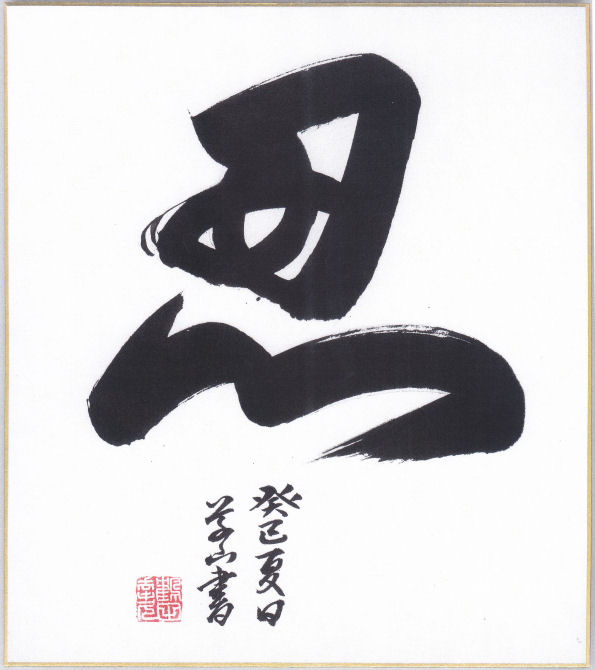 忍
癸巳夏日
山書